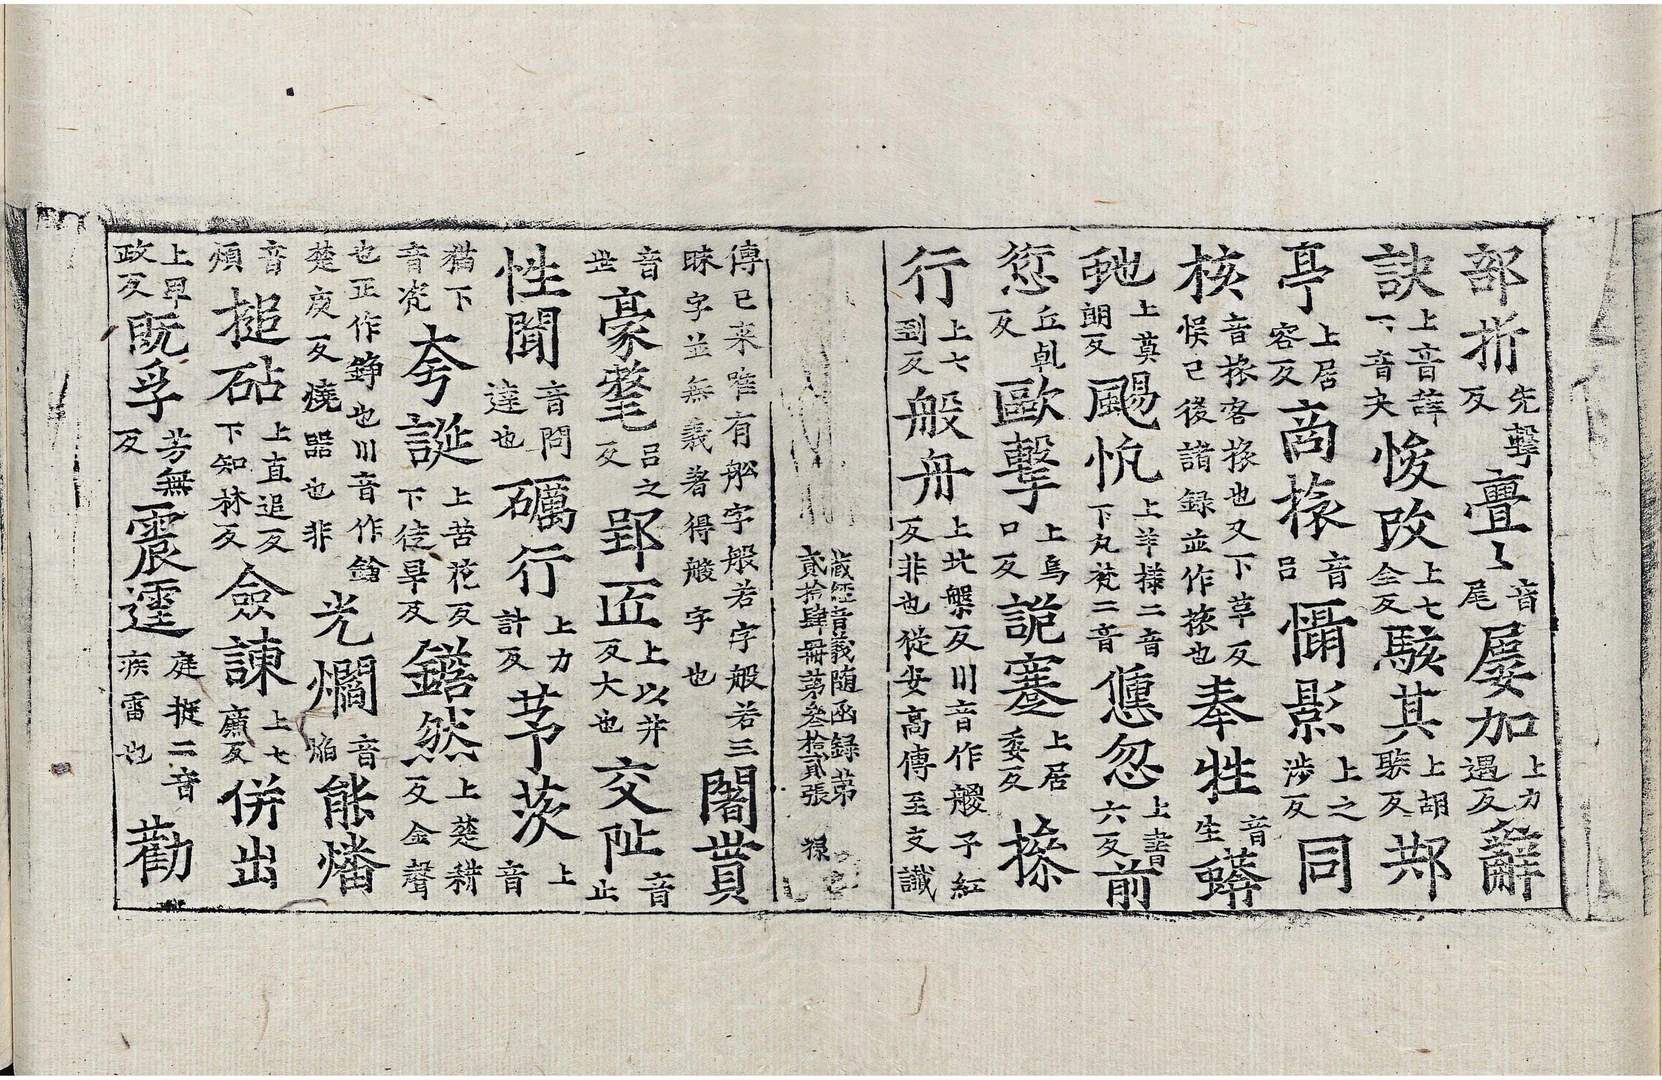 部㭊先擊反亹〻音尾屢加上力遇反辭
訣上音辝下音夬悛改上七全反駭其上胡騃反邦
亭上居容反商㨾音呂慴影上之涉反同
核音㨾客㨾也又下草反悮已後諸録並作㨾也奉牲音生蠎
虵上莫朗反颺忛上羊様二音下丸梵二音憓忽上書六反前
愆丘乹反歐擊上烏口反詭蹇上居委反搽
行上七到反般舟上北槃反川音作䑺子紅反非也従安髙傳至支讖
藏經音義随函録第貳拾肆冊第叄拾貳張 禄
傳已来唯有舩字般若字般若三昧字並無義著得艘字也闍貲
音世豪氂呂之反郢匠上以井反大也交阯音止
性聞音問達也礪行上力計反苧茨上音
猫下音瓷夸誕上苦花反下徒旱反鍇然上楚耕反金聲
也正作錚也川音作鎗楚庚反燒器也非光爓音焰熊燔
音煩搥砧上直追反下知林反僉諫上七廉反併出
上卑政反既孚芳無反震霆庭挺二音疾雷也勸